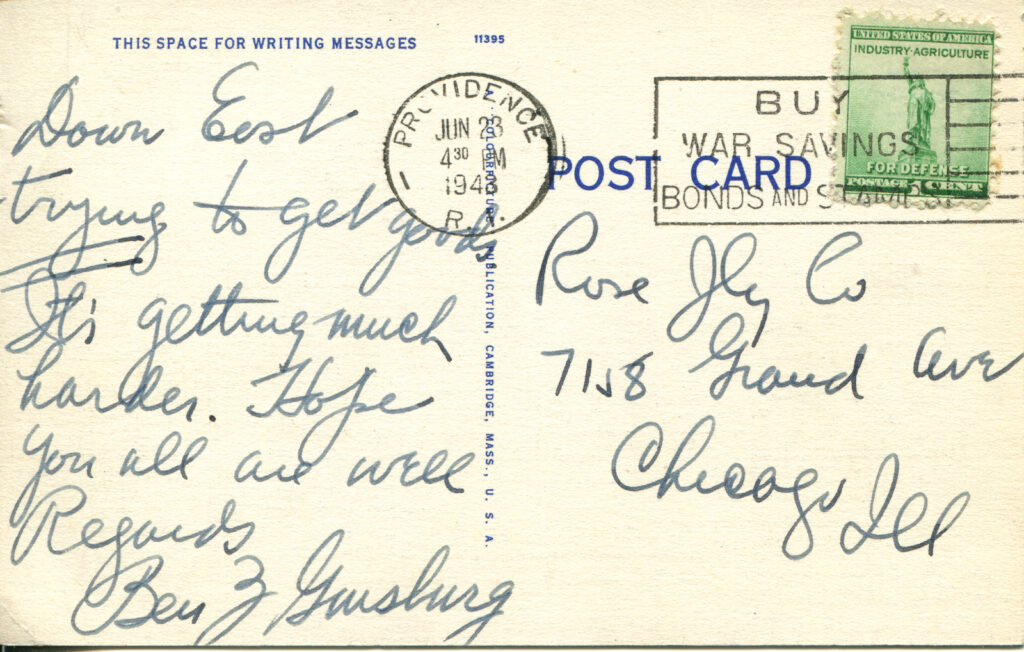 THIS SPACE FOR WRITING MESSAGES
11395
Down East
trying to get goods
It's getting much
harder. Hope
you all are well
Regards
Ben Z Ginsburg
PUBLICATION, CAMBRIDGE, MASS., U. S. A.
PROVIDENCE
JUN 23
4 30 PM
1943
R.I.
BUY
WAR SAVINGS
BONDS AND
UNITED STATES OF AMERICA
INDUSTRY·AGRICULTURE
FOR DEFENSE
POSTAGE 1 CENT
POST CARD
Rose Jly Co
7158 Grand Ave
Chicago Ill